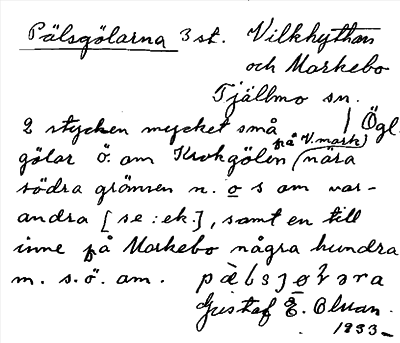 Pälsgölarna 3 st. Vilkhyttan
och Markebo
Tjällmo sn.
Ögl.
2 stycken mycket små
på V. mark)
gölar ö. om Krokgölen (nära
södra gränsen n. o s om var-
andra [se: ek.], samt en till
inne på Markebo några hundra
m. s.ö. om.
Gustaf E.
1933